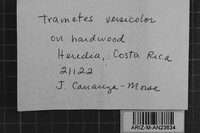 trametes versicolor
on hardwood
Heredia, Costa Rica
21122
J. Cananza-Morse
ARIZ-M-AN23634